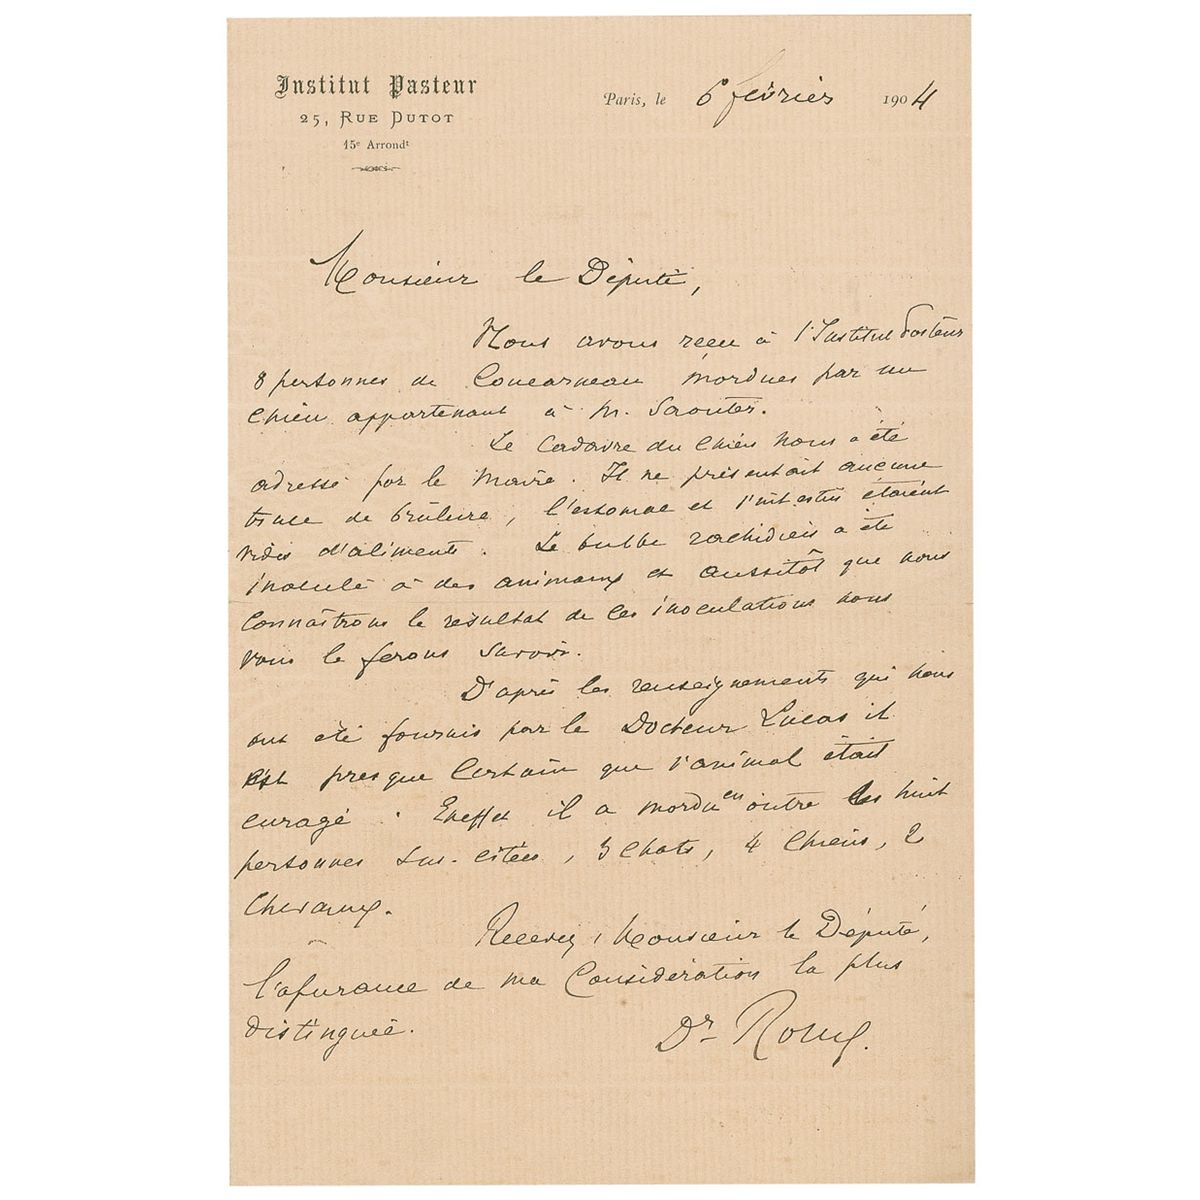 Institut Pasteur
25, RUE DUTOT
15e Arrondt
Paris, le 6 février 1904
Monsieur le Député,
Nous avons reçu à l'Institut Pasteur
8 personnes de Concarneau mordues par un
chien appartenant à M. Saouter.
Le cadavre du chien nous a été
adressé par le Maire. Il ne présentait aucune
trace de brûlure, l'estomac et l'intestin étaient
vides d'aliments. Le bulbe rachidien a été
inoculé à des animaux et aussitôt que nous
connaîtrons le résultat de ces inoculations nous
vous le ferons savoir.
D'après les renseignements qui nous
ont été fournis par le Docteur Lucas il
est presque certain que l'animal était
enragé. En effet il a mordu en outre les huit
personnes sus-citées, 3 chats, 4 chiens, 2
chevaux.
Recevez, Monsieur le Député,
l'assurance de ma considération la plus
distinguée.
Dr Roux.